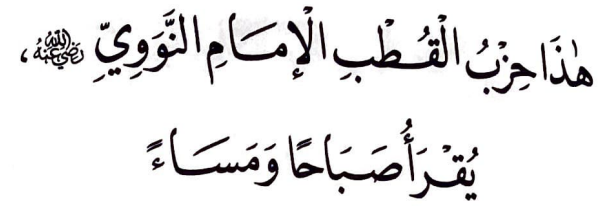 هٰذَا حِزْبُ الْقُطْبِ الْإِمَامِ النَّوَوِيِّ رَضِيَ اللهُ عَنْهُ،
يُقْرَأُ صَبَاحًا وَمَسَاءً